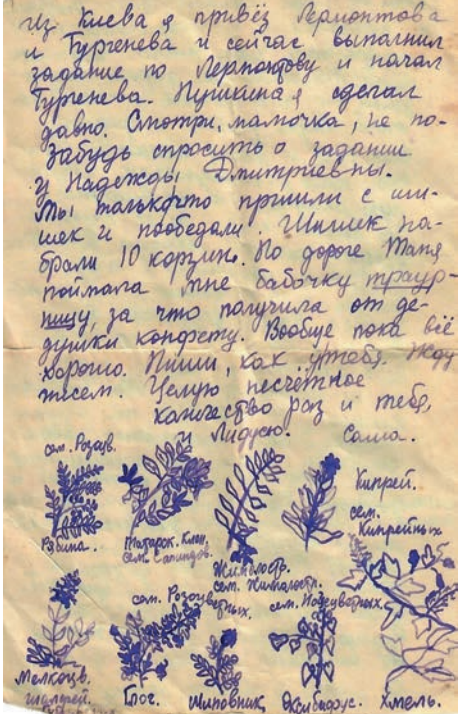 Из Киева я привёз Лермонтова
и Тургенева и сейчас выполнил
задание по Лермонтову и начал
Тургенева. Пушкина я сделал
давно. Смотри, мамочка, не по-
забудь спросить о задании
у Надежды Дмитриевны.
Мы только что пришли с ши-
шек и пообедали. Шишек на-
брали 10 корзин. По дороге Таня
поймала мне бабочку траур-
ницу, за что получила от де-
душки конфету. Вообще пока всё
хорошо. Пиши, как у тебя. Жду
писем. Целую несчётное
количество раз и тебя,
и Лидусю. Саша.
сем. Розоцв.
Рябина.
Татарск. Клён,
сем. Сапиндов.
Жимолость.
сем. Жималостн.
Кипрей.
сем.
Кипрейных
Мелкоцв.
шалфей.
сем. Розоцветных,
Глог.
Шиповник,
сем. Норичветных.
Хмель.